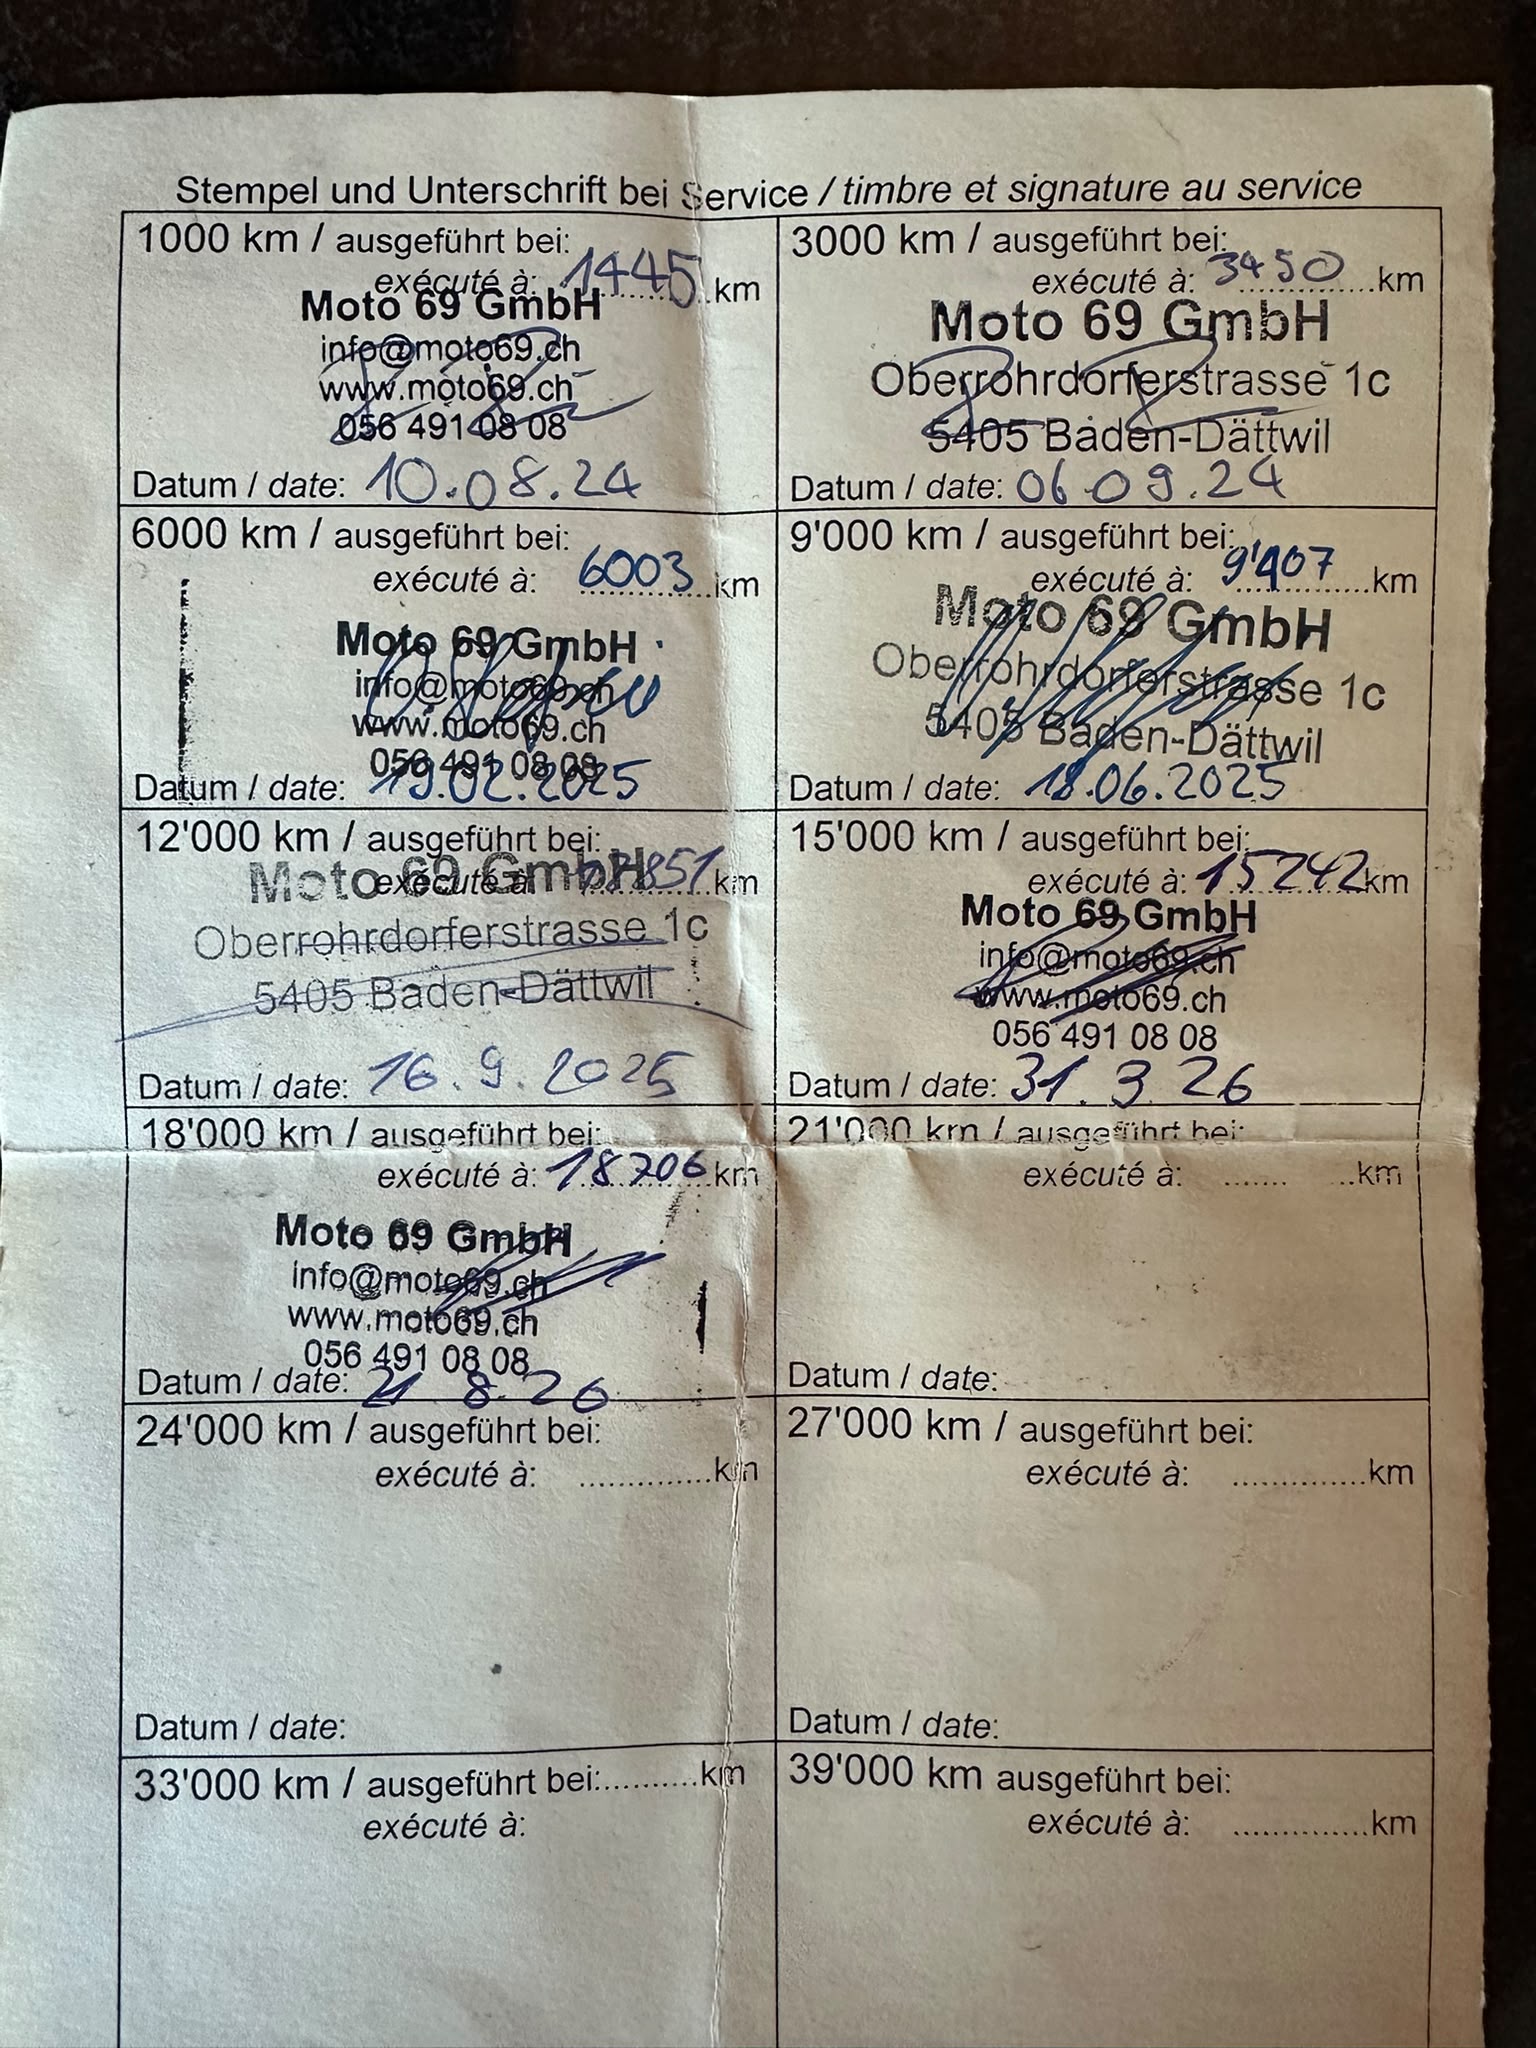 Stempel und Unterschrift bei Service / timbre et signature au service
1000 km / ausgeführt bei:
exécuté à: 1445 km
Moto 69 GmbH
info@moto69.ch
www.moto69.ch
056 491 08 08
Datum / date: 10.08.24
3000 km / ausgeführt bei:
exécuté à: 3450 km
Moto 69 GmbH
Oberrohrdorferstrasse 1c
5405 Baden-Dättwil
Datum / date: 06 09.24
6000 km / ausgeführt bei:
exécuté à: 6003 km
Moto 69 GmbH
info@moto69.ch
www.moto69.ch
056 491 08 08
Datum / date: 19.02.2025
9'000 km / ausgeführt bei:
exécuté à: km
Moto 69 GmbH
Oberrohrdorferstrasse 1c
5405 Baden-Dättwil
Datum / date: 18.06.2025
12'000 km / ausgeführt bei:
exécuté à km
Moto 69 GmbH
Oberrohrdorferstrasse 1c
5405 Baden-Dättwil
Datum / date: 16.9.2025
15'000 km / ausgeführt bei:
exécuté à: 15242 km
Moto 69 GmbH
info@moto69.ch
www.moto69.ch
056 491 08 08
Datum / date: 31.3.26
18'000 km / ausgeführt bei:
exécuté à: 18706 km
Moto 69 GmbH
info@moto69.ch
www.moto69.ch
056 491 08 08
Datum / date: 21 8.26
21'000 km / ausgeführt bei:
exécuté à: ....... ..km
Datum / date:
24'000 km / ausgeführt bei:
exécuté à: ..............km
Datum / date:
27'000 km / ausgeführt bei:
exécuté à: ..............km
Datum / date:
33'000 km / ausgeführt bei:..........km
exécuté à:
39'000 km ausgeführt bei:
exécuté à: ..............km